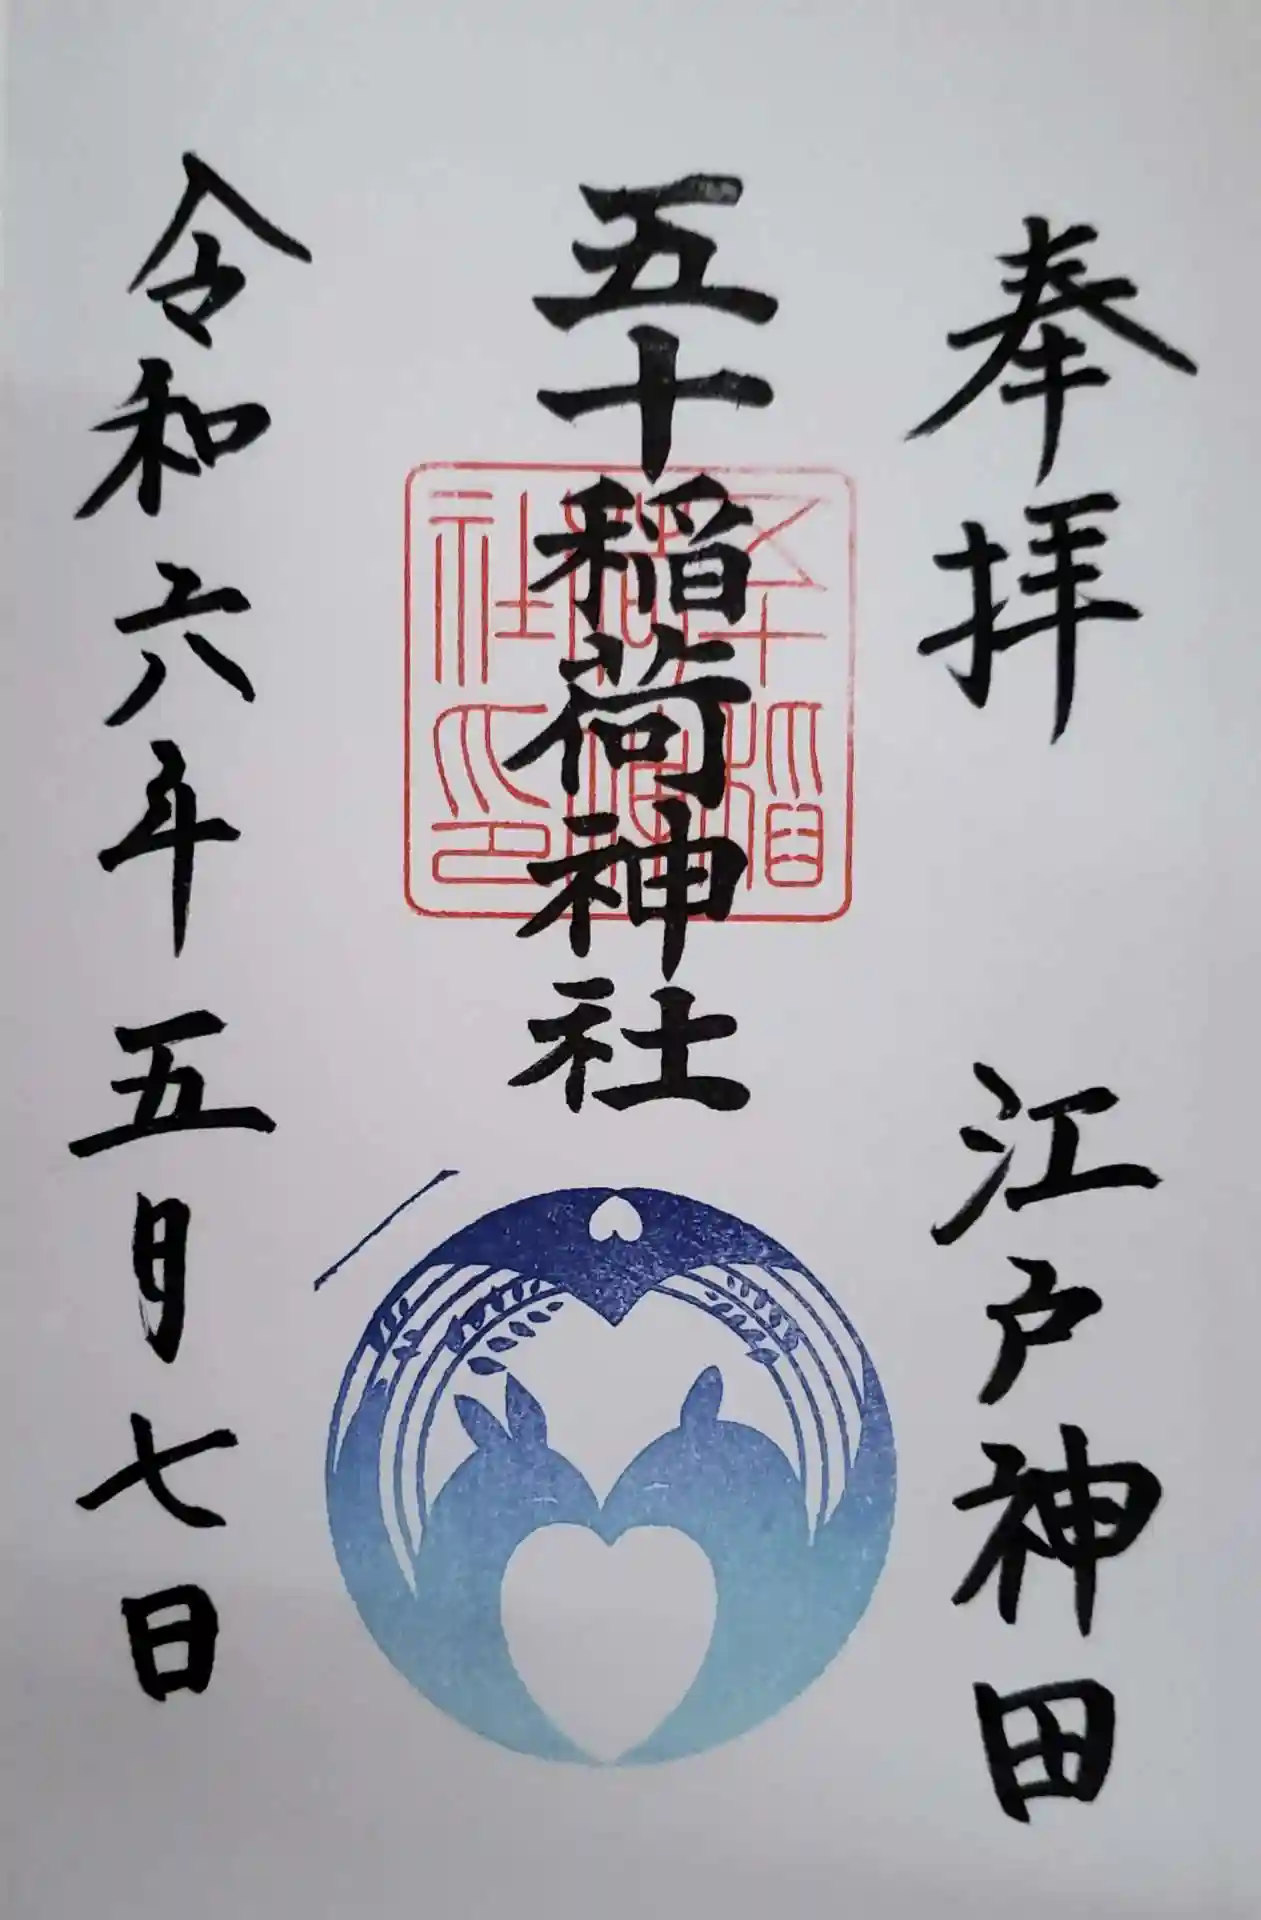 奉拝 江戸神田
五十稲荷神社
五十稲荷神社印
令和六年五月七日